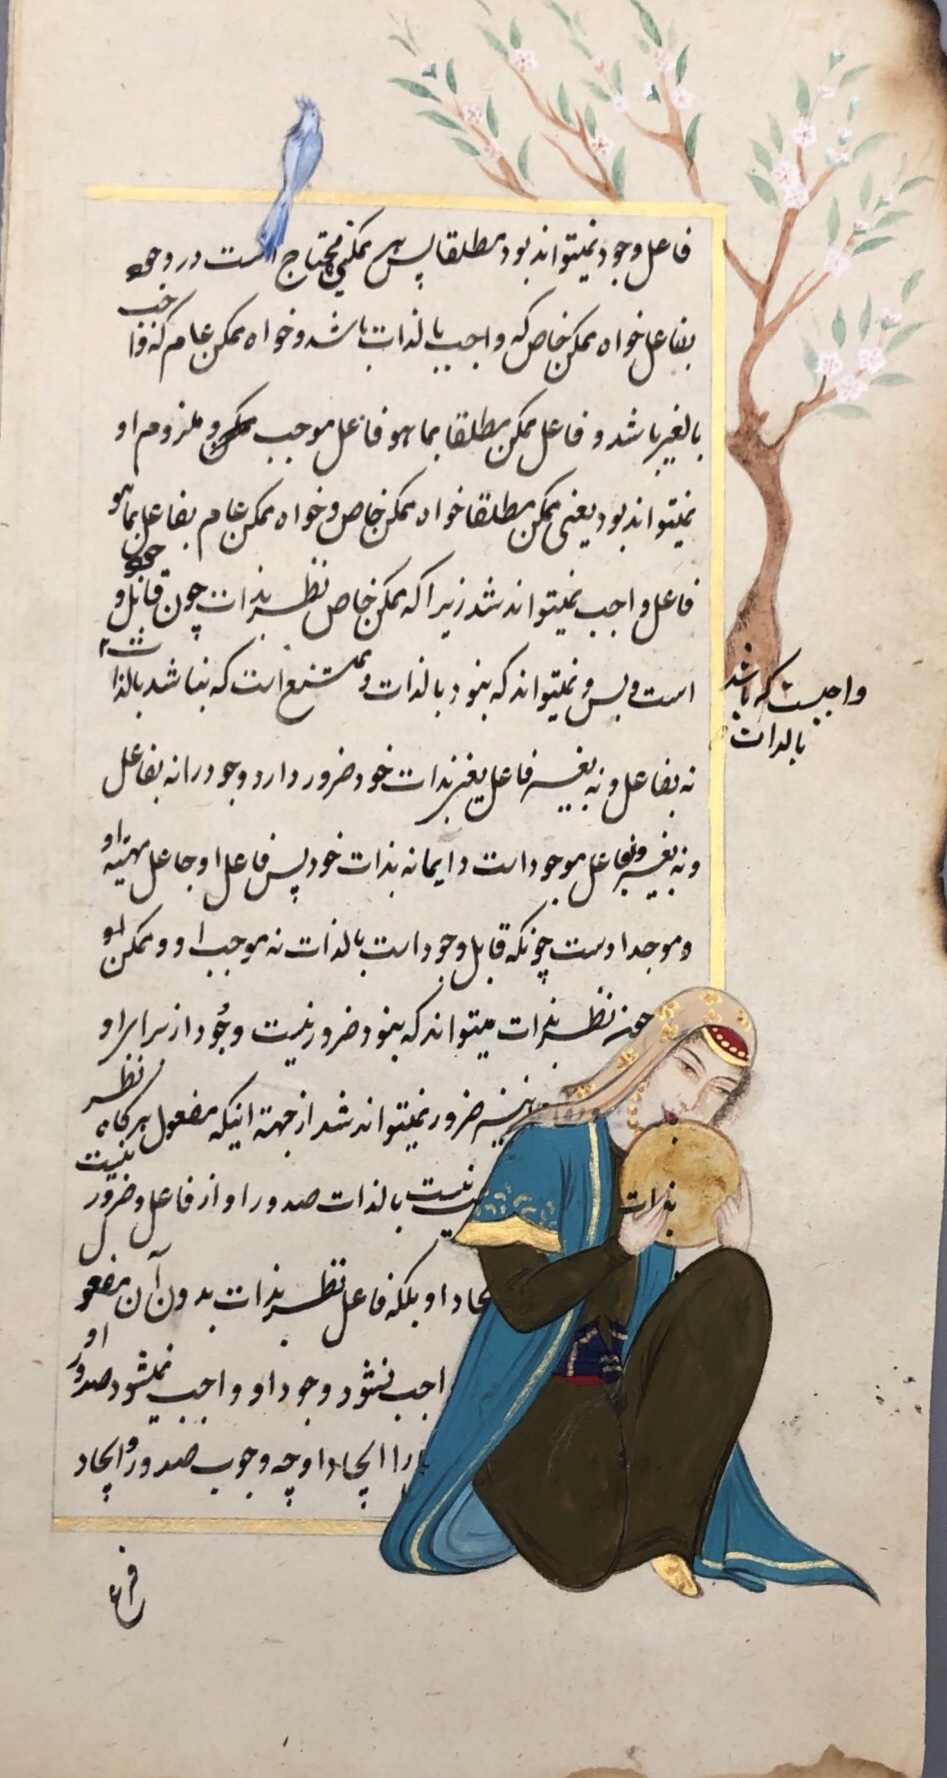 فاعل وجود نمیتواند بود مطلقا پس هر ممکنی محتاج است در وجود
بفاعل خواه ممکن خاص که واجب بالذات باشد و خواه ممکن عام که واجب
بالغیر باشد و فاعل ممکن مطلقا بما هو فاعل موجب ممکن و ملزوم او
نمیتواند بود یعنی ممکن مطلقا خواه ممکن خاص و خواه ممکن عام بفاعل بما هو
فاعل واجب نمیتواند شد زیرا که ممکن خاص نظر بذات چون قابل وجود
است و بس و نمیتواند که بنود بالذات و ممتنع است که نباشد بالذات
واجبست که باشد
بالذات
نه بفاعل و نه بغیر فاعل بغیر ذات خود ضرور دارد وجود را نه بفاعل
و نه بغیر فاعل موجود است دایما نه بذات خود پس فاعل او جاعل مهیته او
و موجد اوست چونکه قابل وجود است بالذات نه موجب او و ممکن او
نظر بذات میتواند که بنود ضرور نیست وجود از برای او
ضرور نمیتواند شد از جهة اینکه مفعول هرگاه نظر
بذات نیست بالذات صدور او از فاعل و ضرور نیست
ایجاد او بلکه فاعل نظر بذات بدون آن مفعول
واجب نشود وجود او و واجب نمیشود صدور او
را ایجاد او چه وجوب صدور و ایجاد